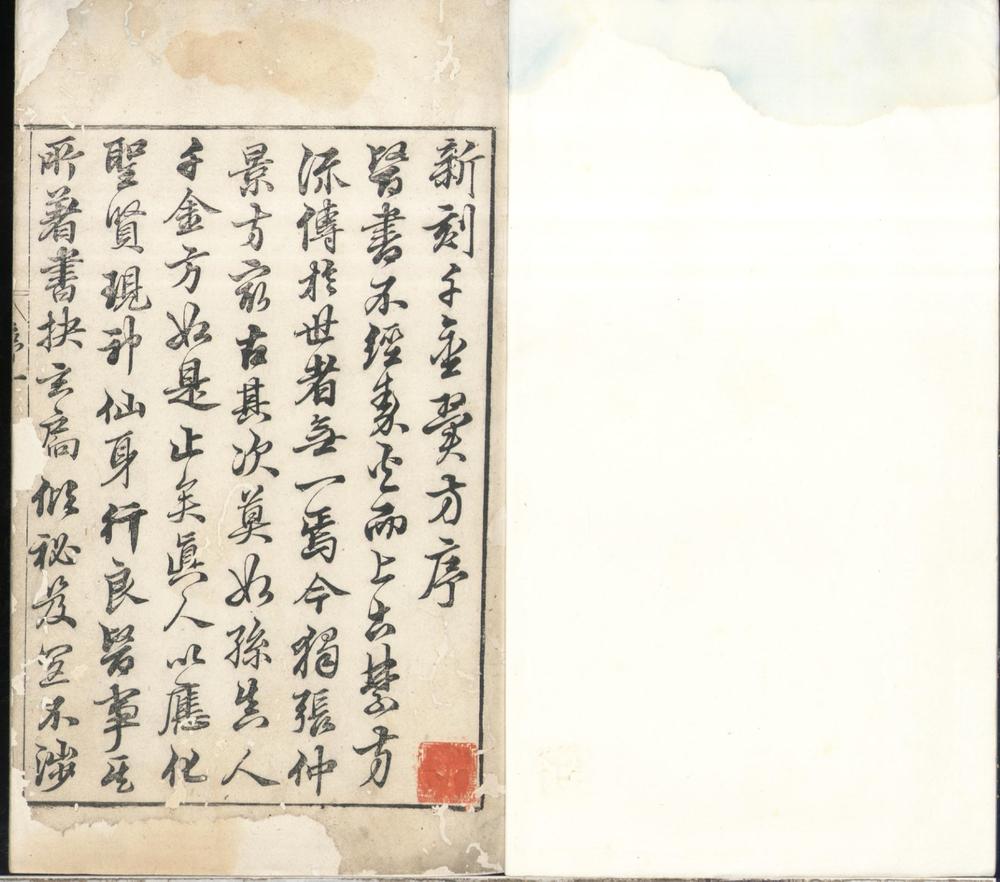 新刻千金翼方序
醫書不經秦火而上古禁方
流傳於世者無一焉今獨張仲
景方最古其次莫如孫真人
千金方如是止矣眞人以應化
聖賢現神仙身行良醫事其
所著書抉玄扃秘笈不涉